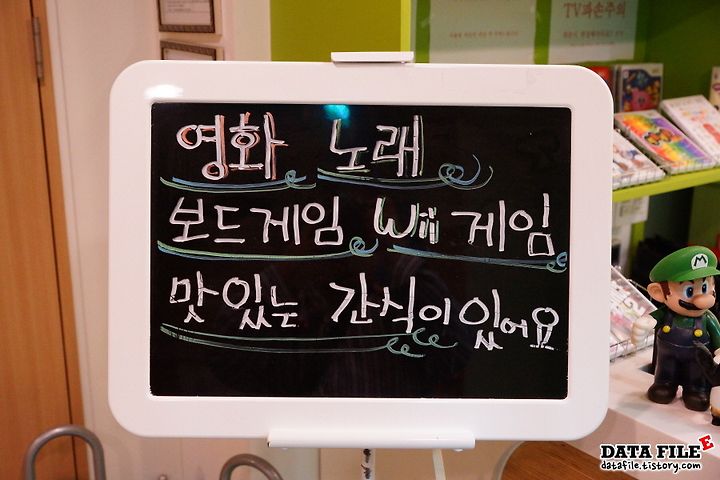 TV파손주의
영화 노래
보드게임 Wii 게임
맛있는 간식이 있어요
M
DATA FILE
datafile.tistory.com